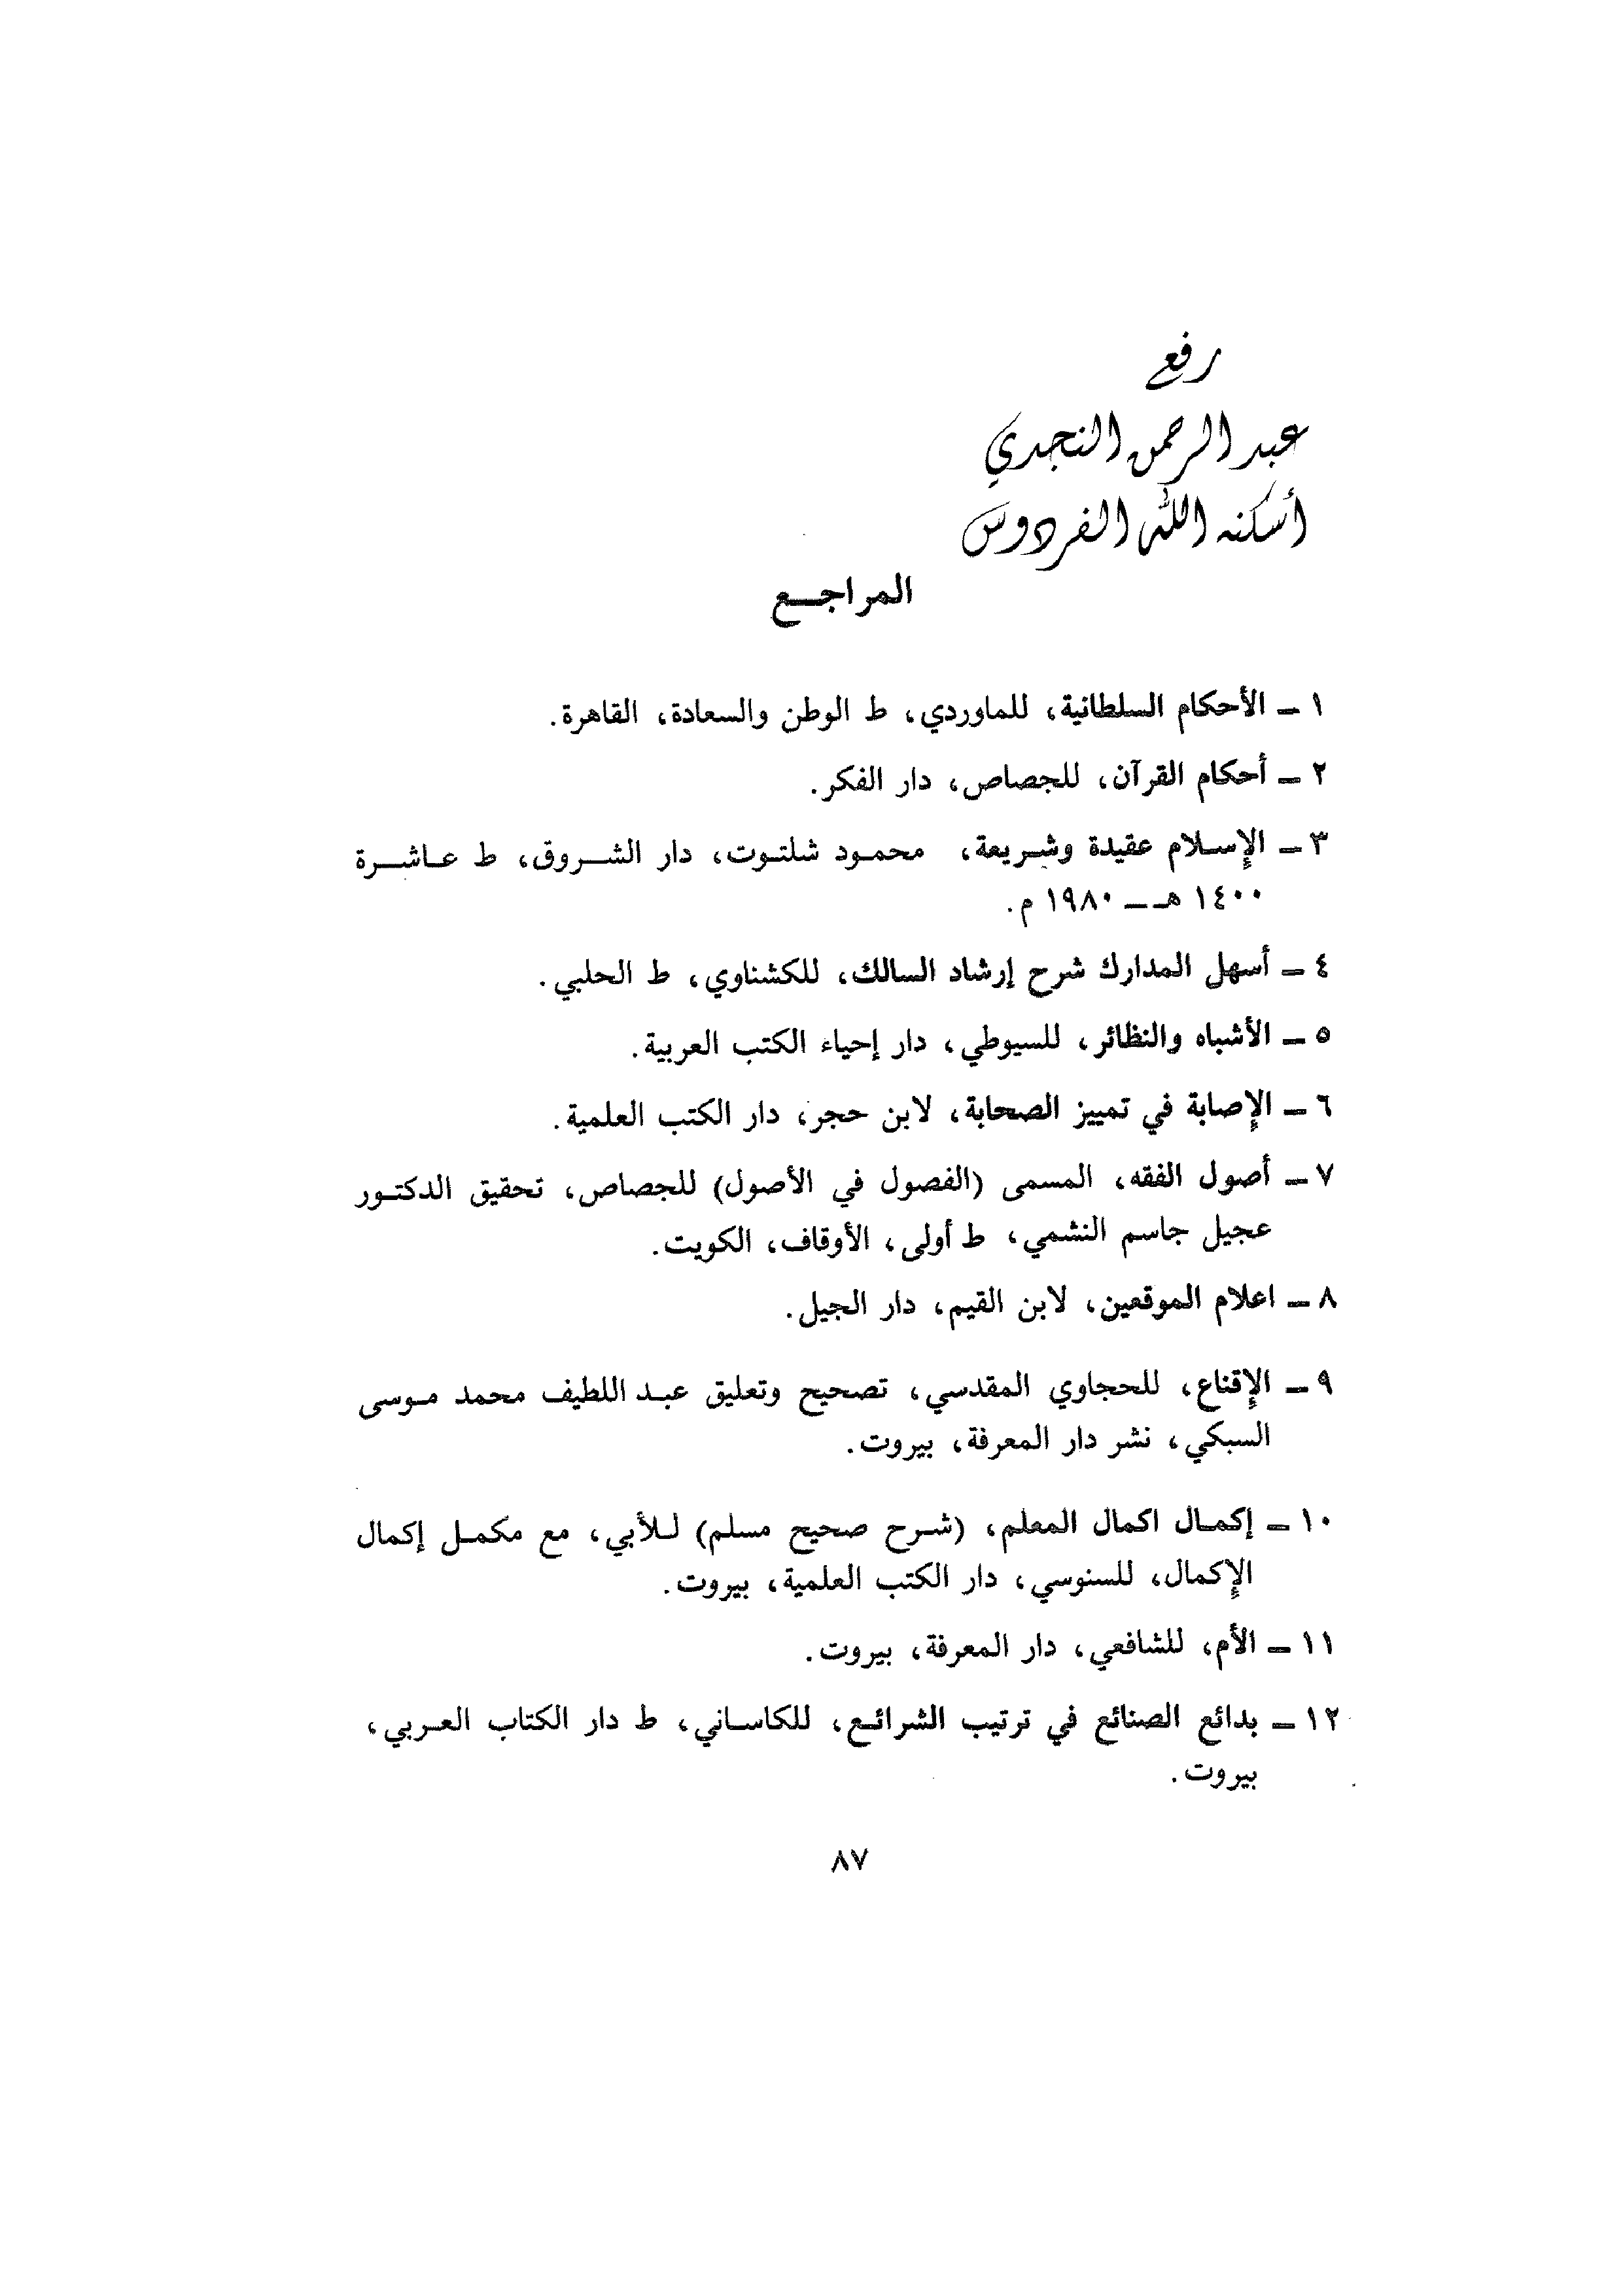 رفع
عبد الرحمن النجدي
أسكنه الله الفردوس
المراجـــع
١ ــ الأحكام السلطانية، للماوردي، ط الوطن والسعادة، القاهرة.
٢ ــ أحكام القرآن، للجصاص، دار الفكر.
٣ ــ الإسلام عقيدة وشريعة، محمود شلتوت، دار الشروق، ط عاشرة
١٤٠٠ هـ ــ ١٩٨٠ م.
٤ ــ أسهل المدارك شرح إرشاد السالك، للكشناوي، ط الحلبي.
٥ ــ الأشباه والنظائر، للسيوطي، دار إحياء الكتب العربية.
٦ ــ الإصابة في تمييز الصحابة، لابن حجر، دار الكتب العلمية.
٧ ــ أصول الفقه، المسمى (الفصول في الأصول) للجصاص، تحقيق الدكتور
عجيل جاسم النشمي، ط أولى، الأوقاف، الكويت.
٨ ــ اعلام الموقعين، لابن القيم، دار الجيل.
٩ ــ الإقناع، للحجاوي المقدسي، تصحيح وتعليق عبد اللطيف محمد موسى
السبكي، نشر دار المعرفة، بيروت.
١٠ ــ إكمال اكمال المعلم، (شرح صحيح مسلم) للأبي، مع مكمل إكمال
الإكمال، للسنوسي، دار الكتب العلمية، بيروت.
١١ ــ الأم، للشافعي، دار المعرفة، بيروت.
١٢ ــ بدائع الصنائع في ترتيب الشرائع، للكاساني، ط دار الكتاب العربي،
بيروت.
٨٧